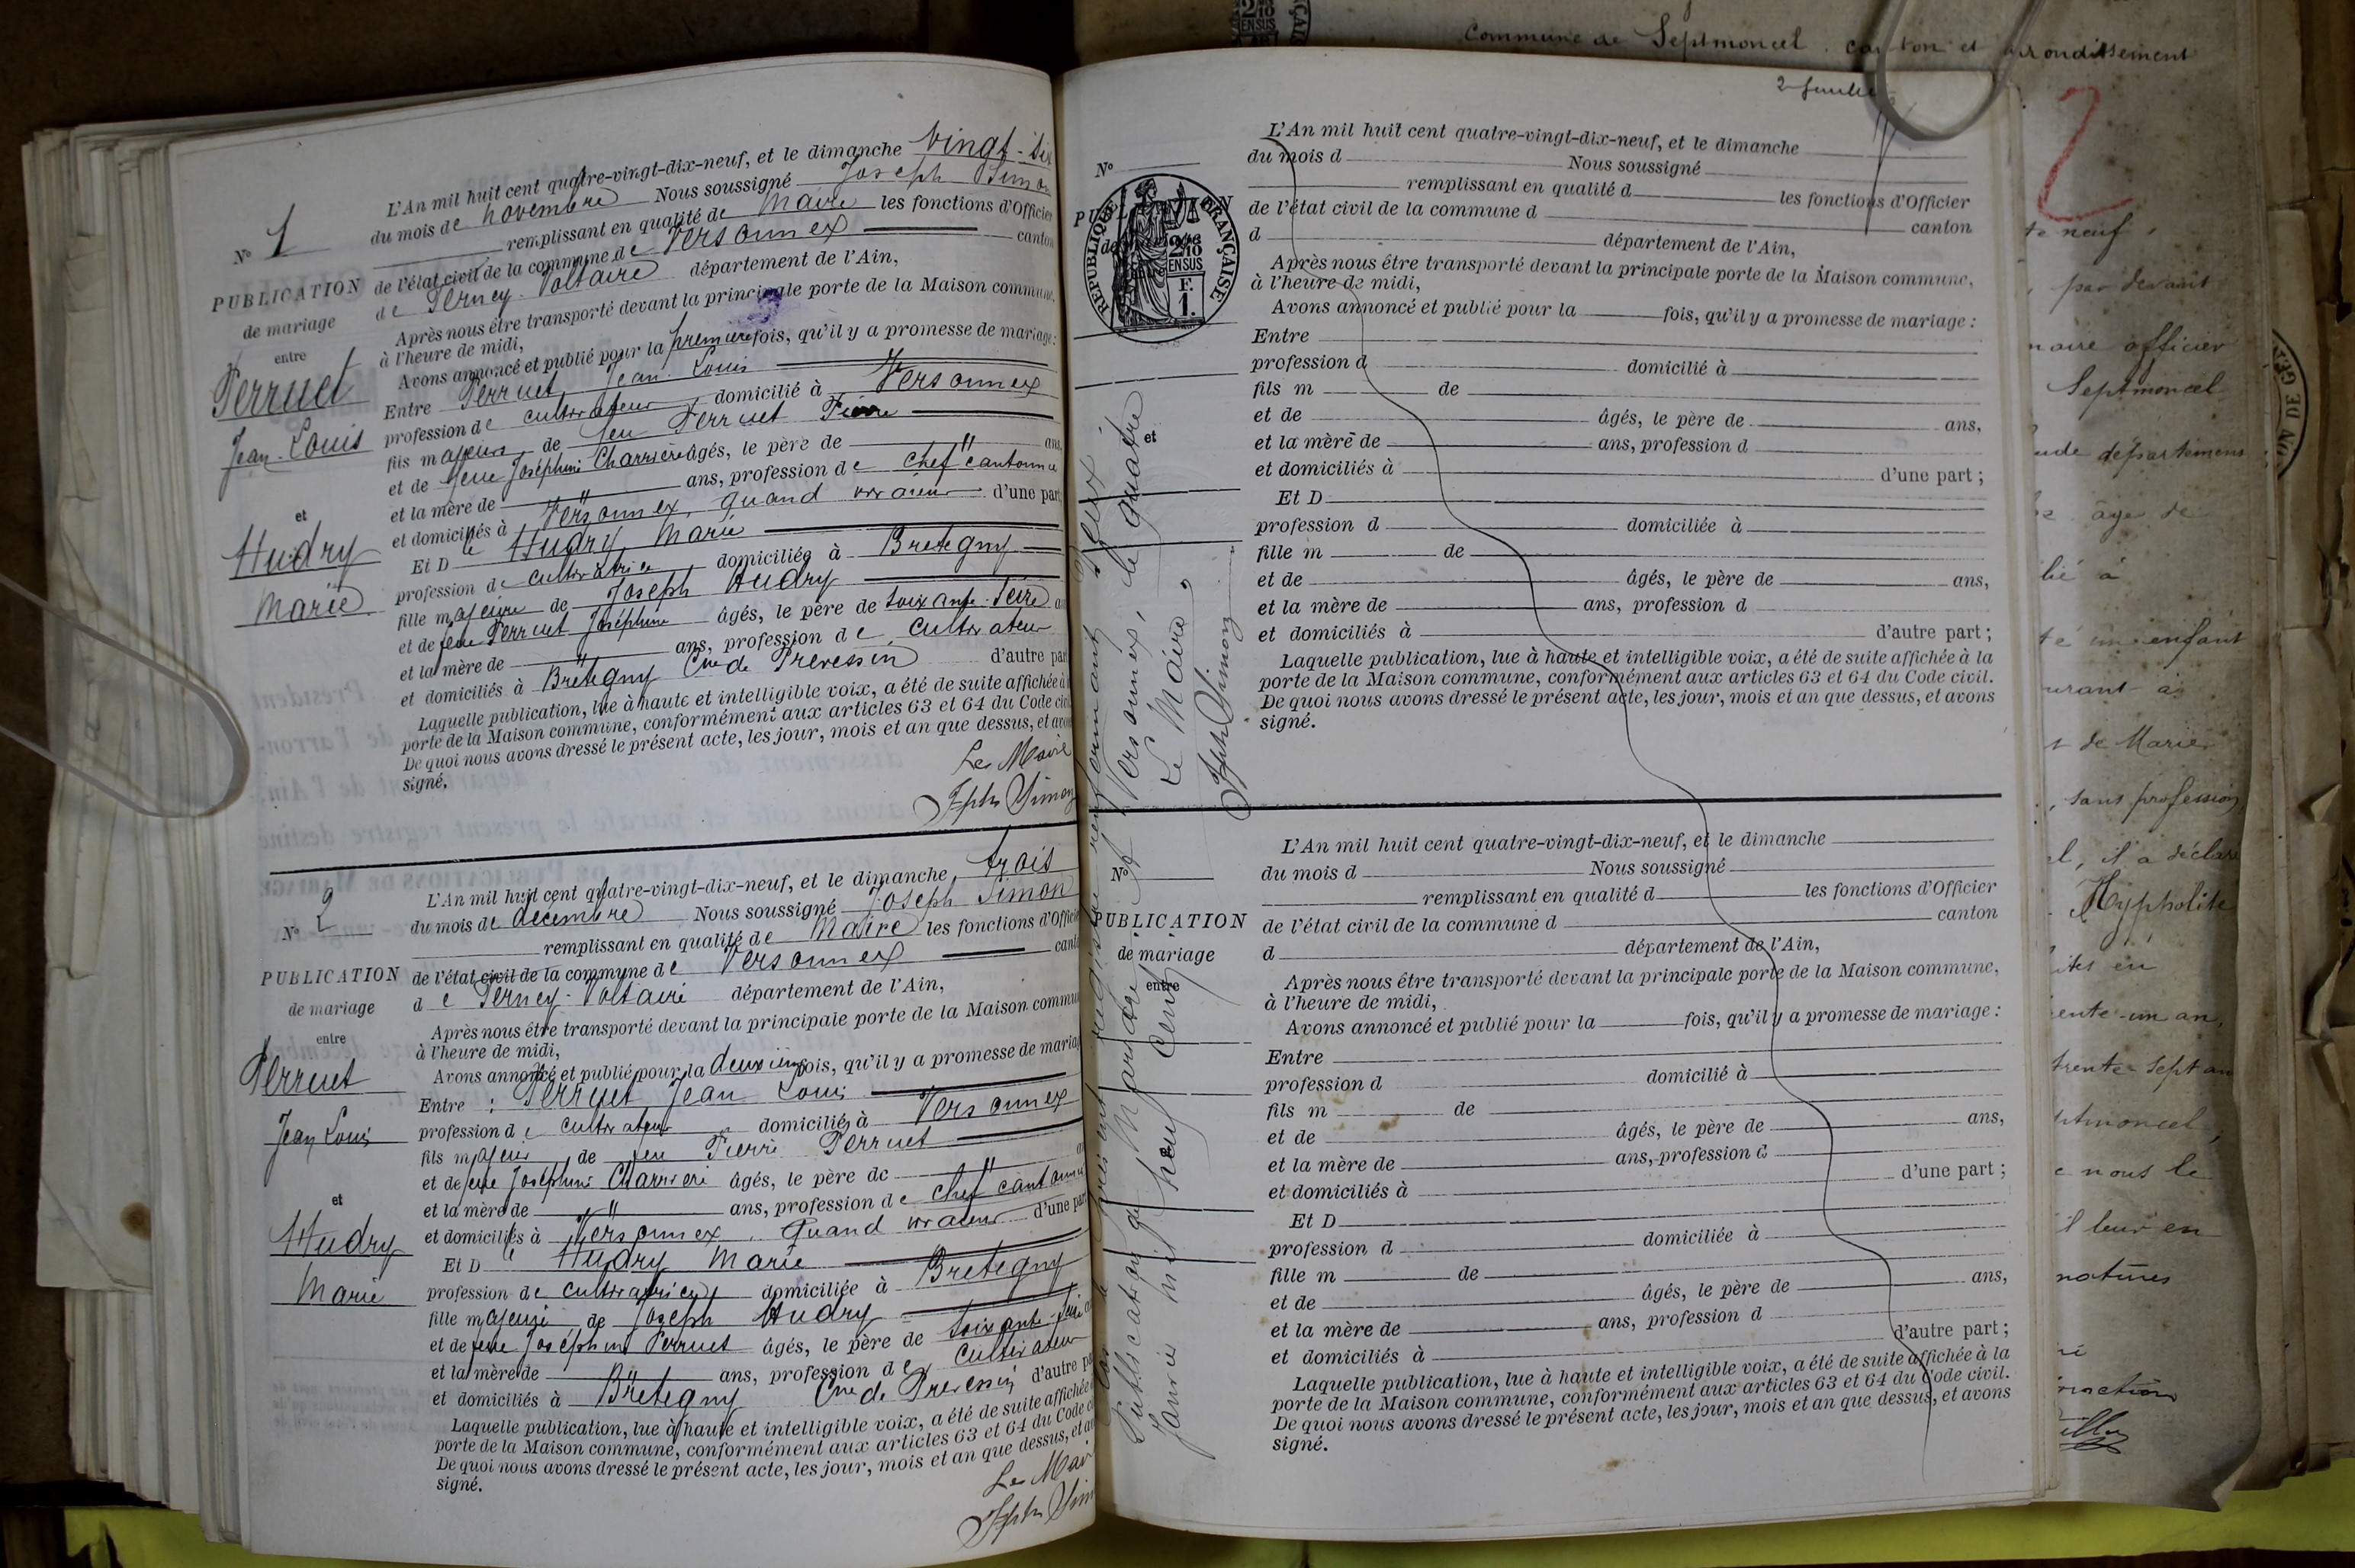 N° 1
PUBLICATION
de mariage
entre
Perruet
Jean-Louis
et
Hudry
Marie
L'An mil huit cent quatre-vingt-dix-neuf, et le dimanche vingt-six
du mois de novembre Nous soussigné Joseph Simon
remplissant en qualité de Maire les fonctions d'Officier
de l'état civil de la commune de Versonnex canton
de Ferney-Voltaire département de l'Ain,
Après nous être transporté devant la principale porte de la Maison commune,
à l'heure de midi,
Avons annoncé et publié pour la première fois, qu'il y a promesse de mariage :
Entre Perruet Jean Louis
profession de cultivateur domicilié à Versonnex
fils majeur de feu Perruet Pierre
et de feue Joséphine Charrière âgés, le père de " ans,
et la mère de " ans, profession de chef cantonnier
et domiciliés à Versonnex, quand vivaient d'une part
Et Dlle Hudry Marie
profession de cultivatrice domiciliée à Bretegny
fille majeure de Joseph Hudry
et de feue Perruet Joséphine âgés, le père de soixante-seize
et la mère de " ans, profession de cultivateur
et domiciliés à Bretigny Cne de Prevessin d'autre part
Laquelle publication, lue à haute et intelligible voix, a été de suite affichée à
porte de la Maison commune, conformément aux articles 63 et 64 du Code civil
De quoi nous avons dressé le présent acte, les jour, mois et an que dessus, et avons
signé.
Le Maire
Jph Simon
N° 2
PUBLICATION
de mariage
entre
Perruet
Jean Louis
et
Hudry
Marie
L'An mil huit cent quatre-vingt-dix-neuf, et le dimanche trois
du mois de décembre Nous soussigné Joseph Simon
remplissant en qualité de Maire les fonctions d'Officier
de l'état civil de la commune de Versonnex canton
de Ferney-Voltaire département de l'Ain,
Après nous être transporté devant la principale porte de la Maison commune
à l'heure de midi,
Avons annoncé et publié pour la deuxième fois, qu'il y a promesse de mariage
Entre : Perruet Jean Louis
profession de cultivateur domicilié à Versonnex
fils majeur de feu Pierre Perruet
et de feue Joséphine Charrière âgés, le père de "
et la mère de " ans, profession de chef cantonnier
et domiciliés à Versonnex. Quand vivaient d'une part
Et Dlle Hudry Marie
profession de cultivatrice domiciliée à Bretegny
fille majeure de Joseph Hudry
et de feue Joséphine Perruet âgés, le père de soixante-seize
et la mère de " ans, profession de cultivateur
et domiciliés à Bretegny Cne de Prevessin d'autre part
Laquelle publication, lue à haute et intelligible voix, a été de suite affichée
porte de la Maison commune, conformément aux articles 63 et 64 du Code
De quoi nous avons dressé le présent acte, les jour, mois et an que dessus, et
signé.
Le Maire
Jph Simon
2 feuillet
N°
PUBLICATION
de mariage
RÉPUBLIQUE FRANÇAISE
2/10
EN SUS
F.
1.
et
L'An mil huit cent quatre-vingt-dix-neuf, et le dimanche
du mois d Nous soussigné
remplissant en qualité d les fonctions d'Officier
de l'état civil de la commune d canton
d département de l'Ain,
Après nous être transporté devant la principale porte de la Maison commune,
à l'heure de midi,
Avons annoncé et publié pour la fois, qu'il y a promesse de mariage :
Entre
profession d domicilié à
fils m de
et de âgés, le père de ans,
et la mère de ans, profession d
et domiciliés à d'une part ;
Et D
profession d domiciliée à
fille m de
et de âgés, le père de ans,
et la mère de ans, profession d
et domiciliés à d'autre part ;
Laquelle publication, lue à haute et intelligible voix, a été de suite affichée à la
porte de la Maison commune, conformément aux articles 63 et 64 du Code civil.
De quoi nous avons dressé le présent acte, les jour, mois et an que dessus, et avons
signé.
N°
PUBLICATION
de mariage
entre
et
L'An mil huit cent quatre-vingt-dix-neuf, et le dimanche
du mois d Nous soussigné
remplissant en qualité d les fonctions d'Officier
de l'état civil de la commune d canton
d département de l'Ain,
Après nous être transporté devant la principale porte de la Maison commune,
à l'heure de midi,
Avons annoncé et publié pour la fois, qu'il y a promesse de mariage :
Entre
profession d domicilié à
fils m de
et de âgés, le père de ans,
et la mère de ans, profession d
et domiciliés à d'une part ;
Et D
profession d domiciliée à
fille m de
et de âgés, le père de ans,
et la mère de ans, profession d
et domiciliés à d'autre part ;
Laquelle publication, lue à haute et intelligible voix, a été de suite affichée à la
porte de la Maison commune, conformément aux articles 63 et 64 du Code civil.
De quoi nous avons dressé le présent acte, les jour, mois et an que dessus, et avons
signé.
le présent registre renfermant deux
Publication de Mariage Versonnex, le quatre
Janvier mil neuf cent Le Maire,
Jph Simon
Commune de Septmoncel. canton et arrondissement
2
neuf,
par devant
maire officier
Septmoncel
département
âge de
à
enfant
de Marie
, sans profession,
il a déclaré
Hyppolite
en
trente-un an,
trente sept an
nous le
leur en